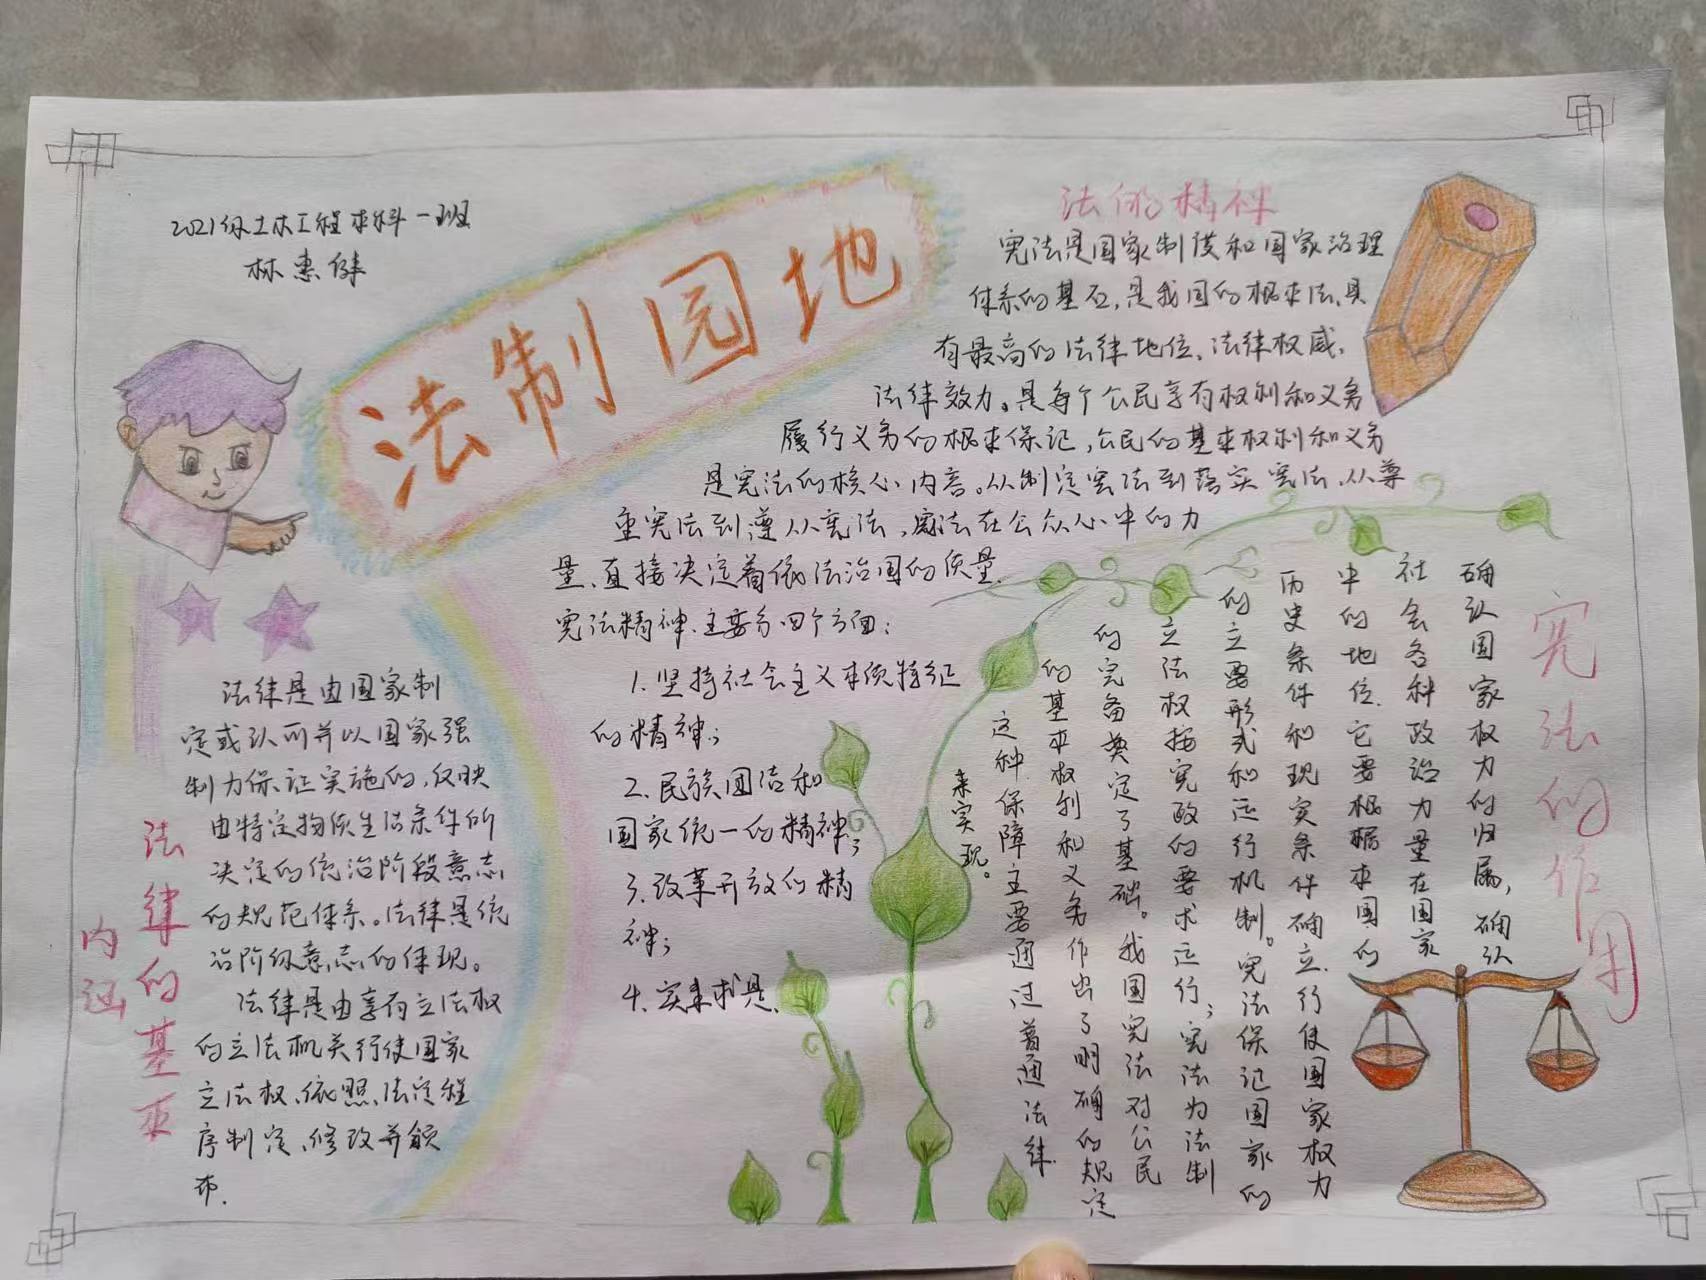 2021级土木工程本科一班
林惠健
法制园地
法的精神
宪法是国家制度和国家治理
体系的基石,是我国的根本法,具
有最高的法律地位、法律权威、
法律效力。是每个公民享有权利和义务
履行义务的根本保记,公民的基本权利和义务
是宪法的核心内容。从制定宪法到落实宪法,从尊
重宪法到遵从宪法,宪法在公众心中的力
量、直接决定着依法治国的质量.
宪法精神.主要分四个方面:
1.坚持社会主义本质特征
的精神;
2.民族团结和
国家统一的精神;
3.改革开放的精
神;
4.实事求是.
法律的基本
内涵
法律是由国家制
定或认可并以国家强
制力保证实施的,反映
由特定物质生活条件所
决定的统治阶段意志
的规范体系。法律是统
治阶级意志的体现。
法律是由享有立法权
的立法机关行使国家
立法权、依照、法定程
序制定、修改并颁
布.
宪法的作用
确认国家权力的归属,确认
社会各种政治力量在国家
中的地位.它要根据本国的
历史条件和现实条件确立.行使国家权力
的立要形式和运行机制。宪法保记国家的
立法权按宪政的要求运行;宪法为法制
的完备奠定了基础。我国宪法对公民
的基本权利和义务作出了明确的规定
这种.保障主要通过普通法律.
来实现。